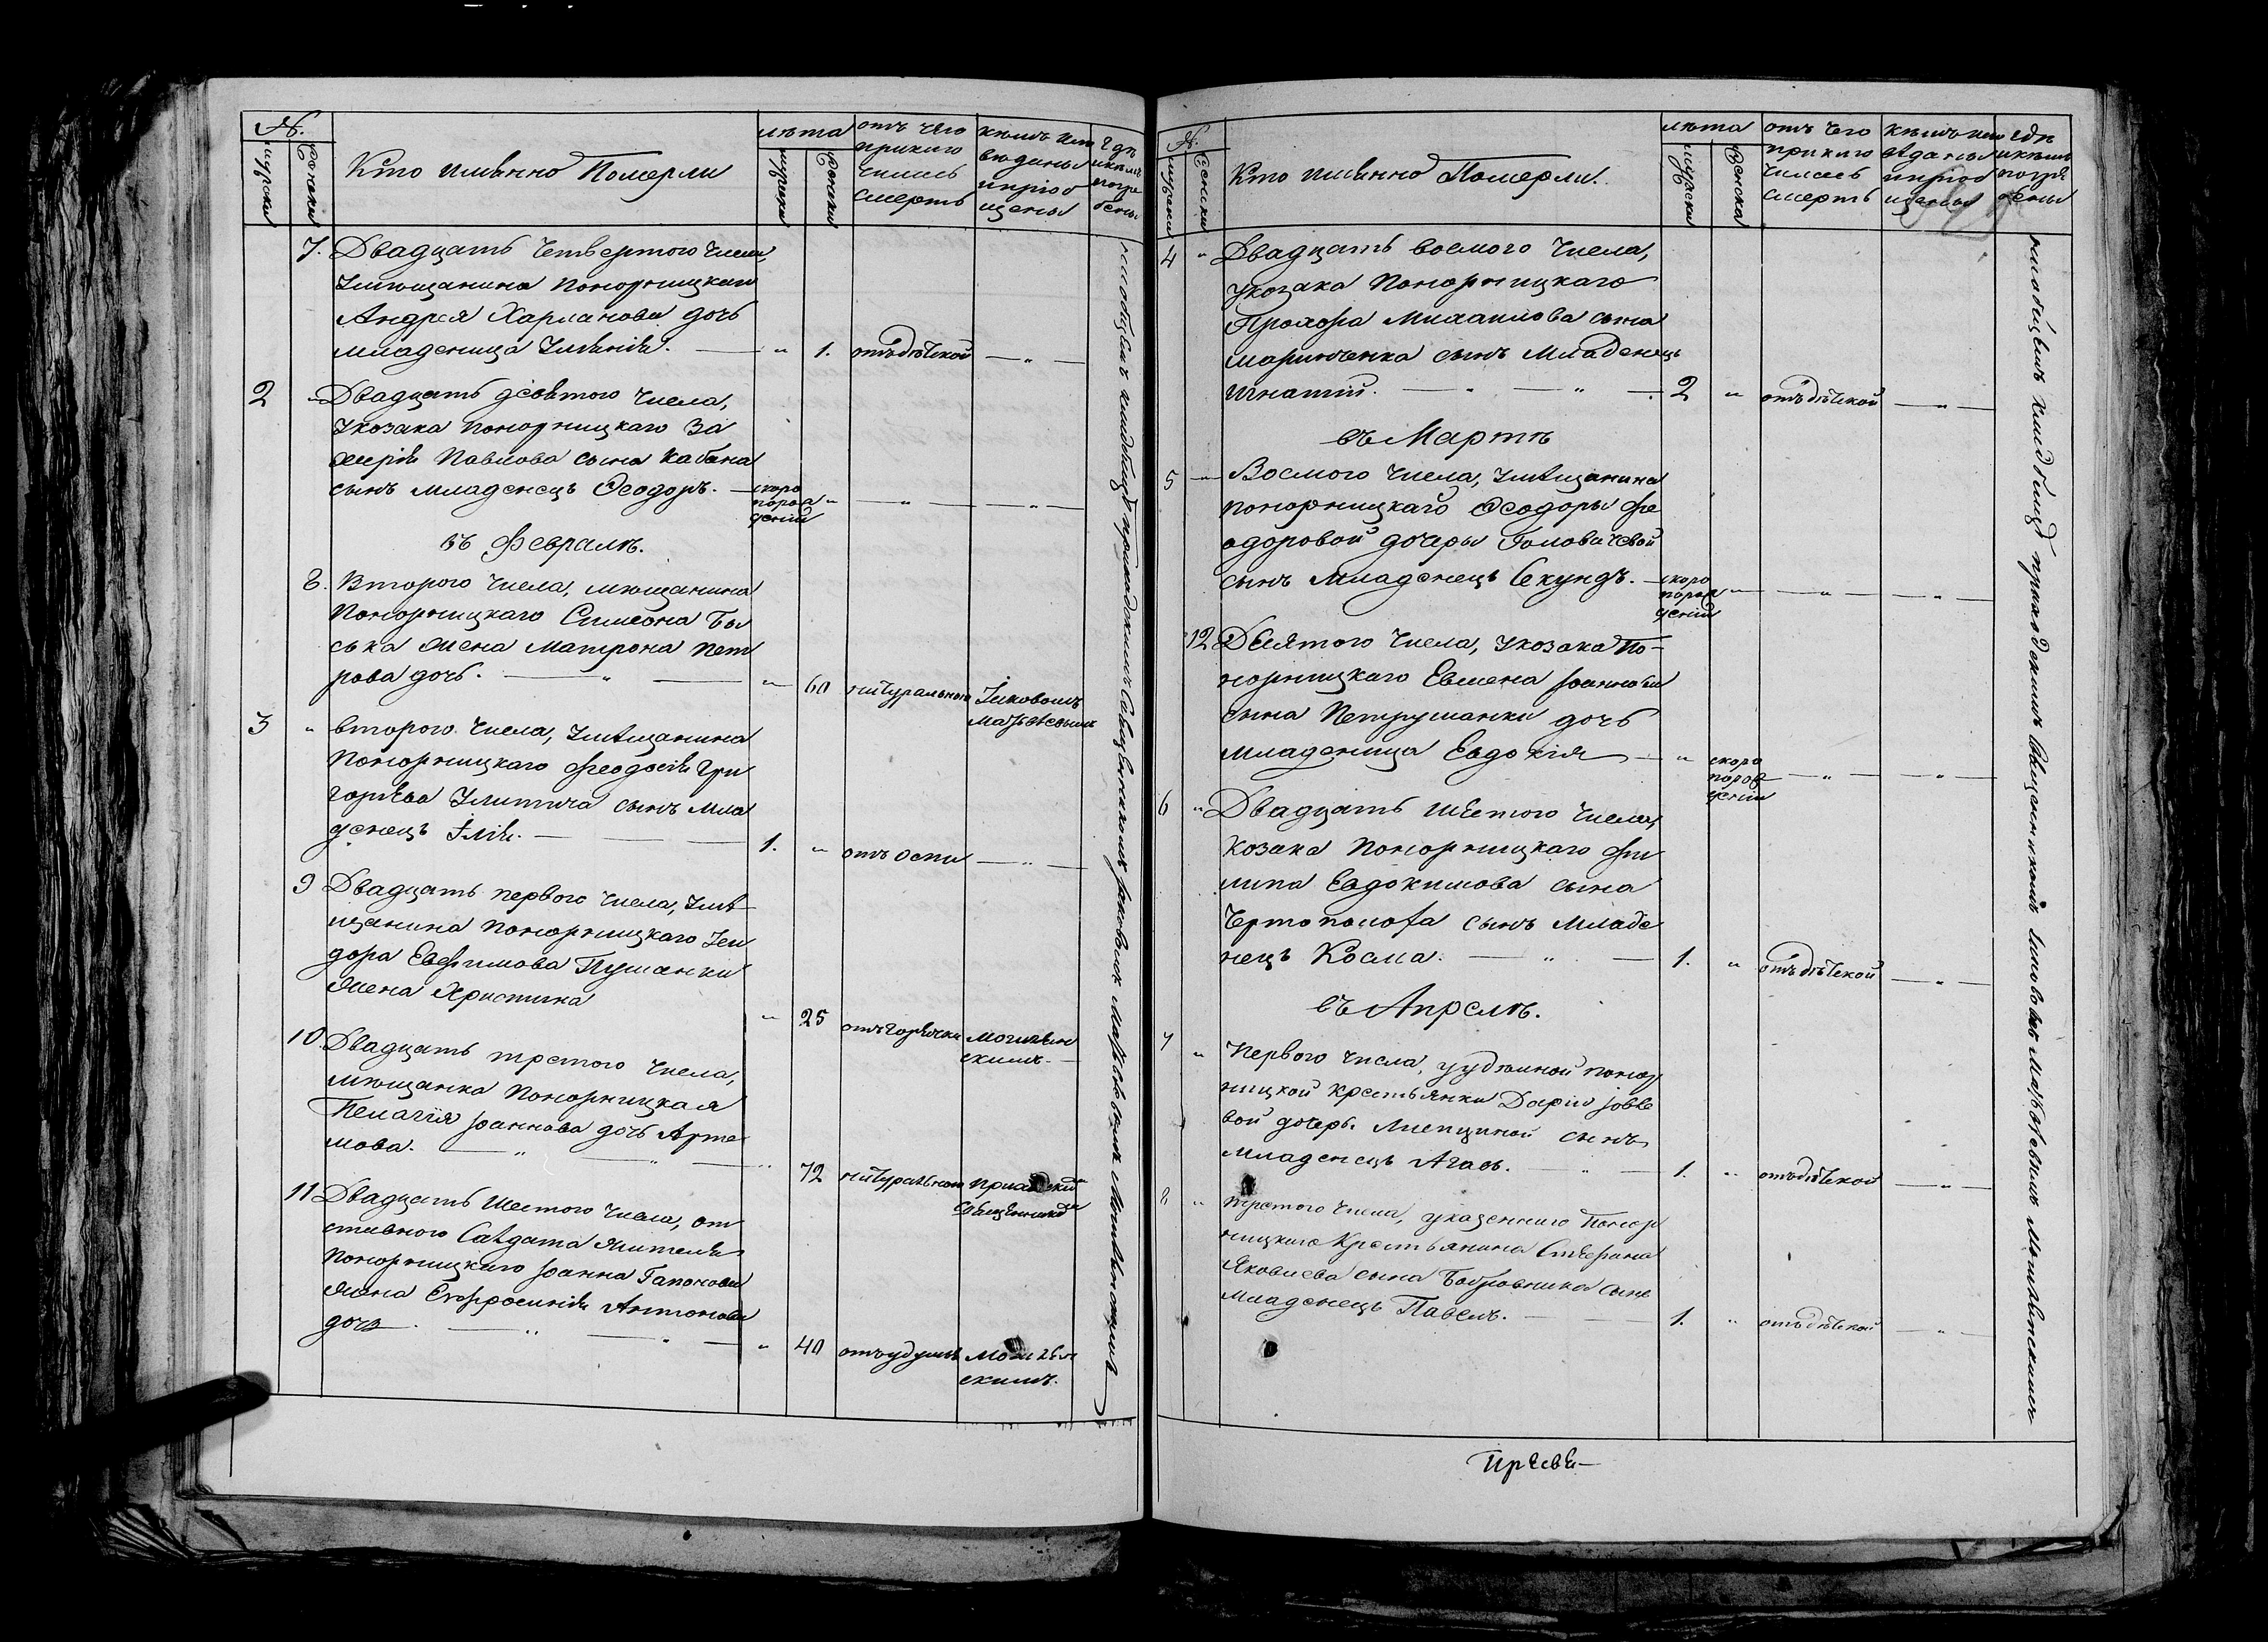 №.
мужски
женски
Кто именно Померли
лѣта
мужски
женски
отъ чего
приключилась
смерть
кѣмъ исп
вѣданы
и пріоб
щены
Гдѣ
и кѣмъ
погре
бены
7. Двадцать Четвертого Числа
Умѣщанина понорницкаго
Андрея Харланова дочь
младеница Улиянія. — „ 1. отъ дѣтской — „ —
2 „ Двадцать девятого Числа,
Укозака Понорницкаго За
харія Павлова сына Кабана
сынъ младенецъ Ѳеодоръ. — скоро
порож
денній „ — „ — — „ —
въ Февралѣ.
8. Второго Числа, мѣщанина
Понорницкаго Симеона Бы
ська жена Матрона Пет
рова дочь. — „ — „ 60 натуральною Іяковомъ
Матвѣевымъ
3 „ второго Числа, Умѣщанина
Понорницкаго Феодосія Гри
горіева сынъ мла
денецъ Ілія. — 1. „ отъ оспи — „ —
9 Двадцать первого Числа, Умѣ
щанина Понорницкаго
дора Евфимова Пушанки
жена Христина „ 25 отъ горячки Могилян
скимъ. —
10. Двадцать третого Числа,
мѣщанка Понорницкая
Пелагія Іоаннова дочь Арте
мова. — „ — „ — „ 72 натуральною
11 Двадцать Шестого Числа, от
ставного Салдата жителя
Понорницкаго Іоанна Гапонова
жена Евфросинія Антонова
дочь. — „ — „ — „ 40 отъ удушя Могилян
скимъ.
№.
мужски
женски
Кто именно Померли.
лѣта
мужски
женска
отъ чего
приключилась
смерть
кѣмъ исп
вѣданы
и пріоб
щены
гдѣ
и кѣмъ
погре
бены
4 „ Двадцать восмого Числа,
укозака Понорницкаго
Прохора Михаилова сына
Маринченка сынъ Младенецъ
Игнатій. — „ — „ — 2 „ отъ дѣтской — „ —
въ Мартѣ
5 „ Восмого Числа, Умѣщанина
понорницкаго Ѳеодоры Фе
одоровой дочеры Головачевой
сынъ Младенецъ Секундъ. — скоро
порож
денній „ — „ — — „ —
12 Десятого Числа, Укозака По-
норницкаго Евмена Іоаннова
сына Петрушанки дочь
младеница Евдокія — „ скоро
порож
денній — „ — — „ —
6 „ Двадцать Шестого Числа,
Козака Понорницкаго Фи
липа Евдокимова сына
Чертополоха сынъ Младе
нецъ Косма. — „ — 1. „ отъ дѣтской — „ —
въ Апрелѣ.
7 „ Первого Числа, понор
ницкой крестьянки Даріи Іовле
вой дочеры сынъ
младенецъ — „ — 1. „ отъ дѣтской — „ —
8 „ третого Числа, указенного Понор
ницкаго Крестьянина Стефана
Яковлева сына Бобровника сынъ
Младенецъ Павелъ. — 1. „ отъ дѣтской — „ —